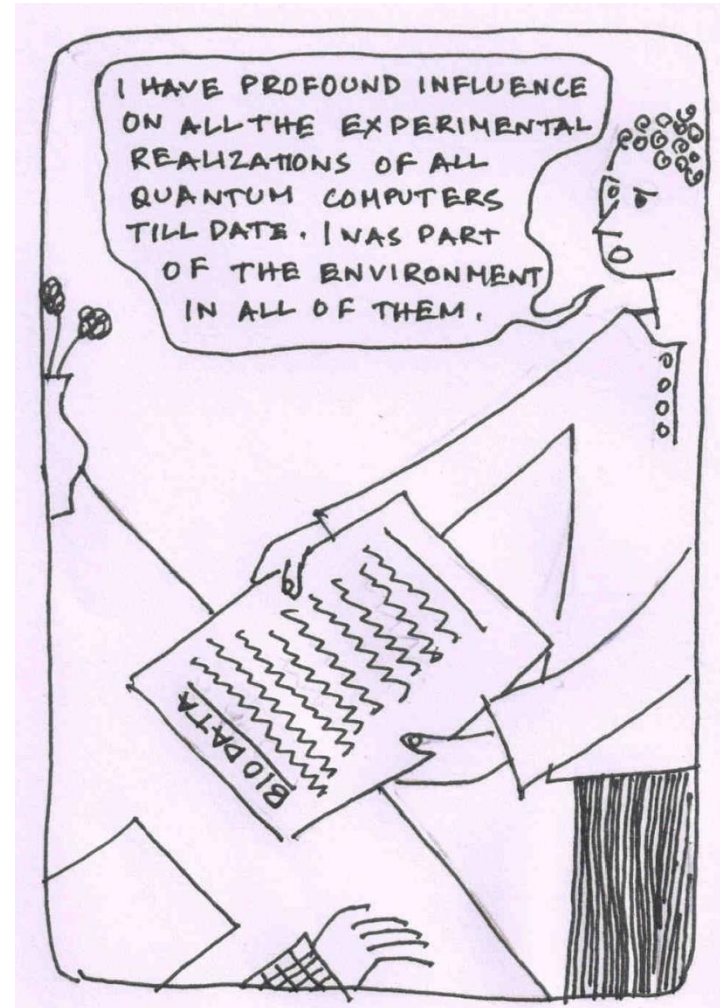 I HAVE PROFOUND INFLUENCE
ON ALL THE EXPERIMENTAL
REALIZATIONS OF ALL
QUANTUM COMPUTERS
TILL DATE. I WAS PART
OF THE ENVIRONMENT
IN ALL OF THEM.
BIO DATA